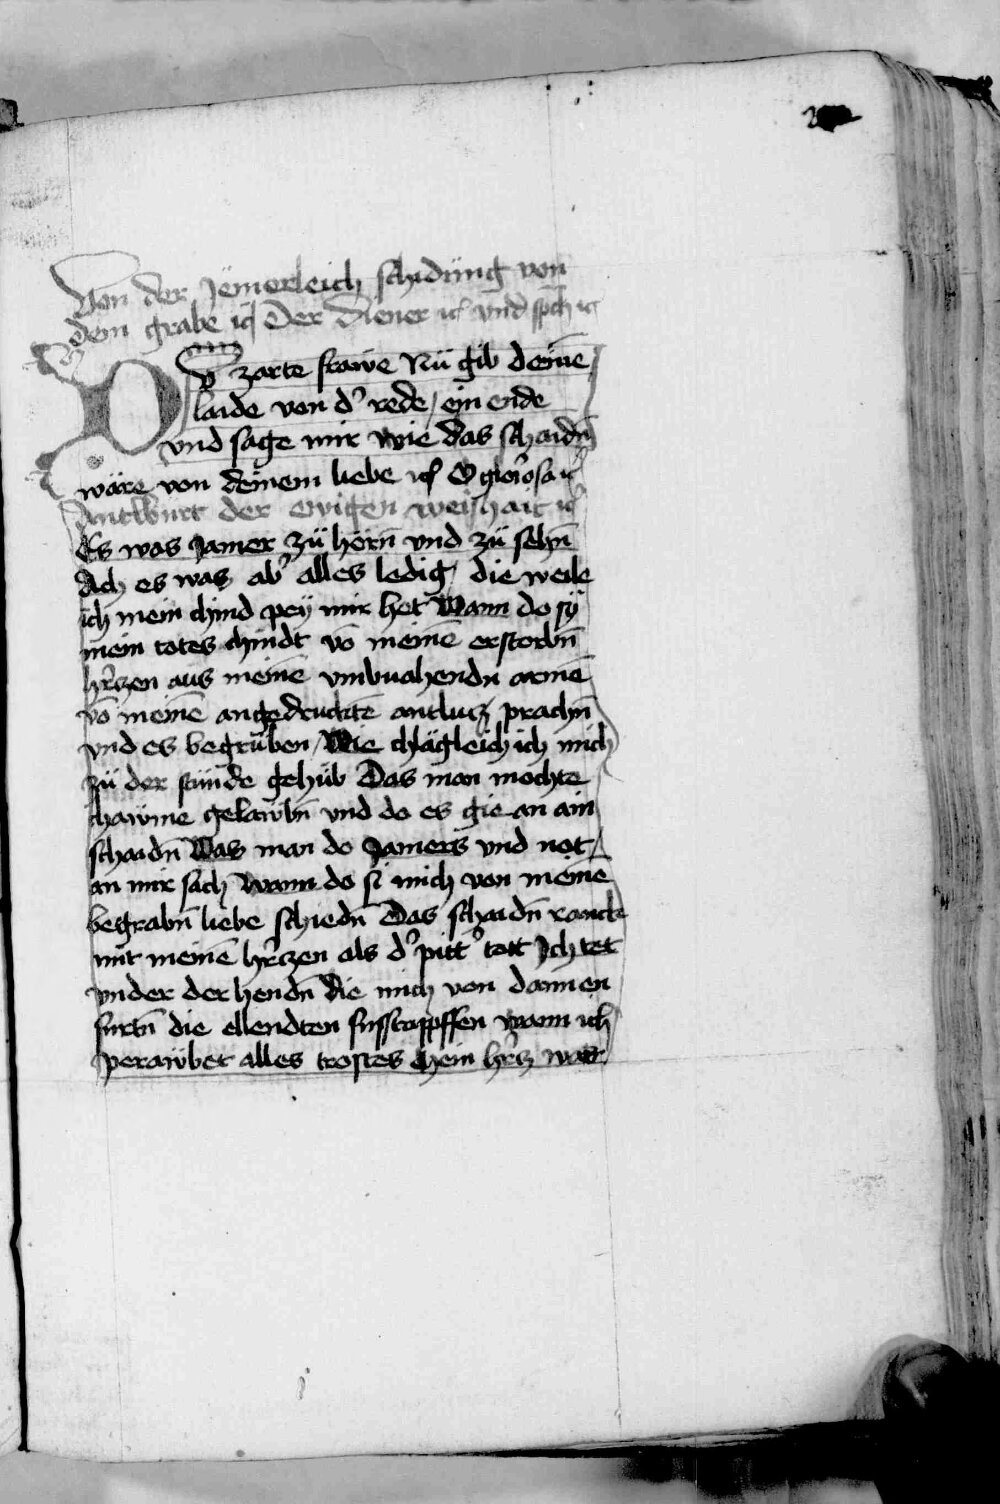 Von der Jemerleich schidung von
dem grabe ic Der Diener ic vnd sprich ic
O zarte frawe Nü gib deinē
laide von d' rede / ein ende
vnd sage mir wie das schaidn̄
wäre von deinem liebe ic O gloriosa ic
Antwurt der ewigen weishait ic
Es was Jamer zü hörn̄ vnd zü sehn̄
Ach es was ab' alles ledig / die weile
ich mein chind pey mir het Wann do sÿ
mein totes chindt vō meinē erstorbn̄
h'czen aus meinē vmbuahendn armē
vō meinē angedruckte antlucz prachn̄
vnd es begrüben / Wie chlägleich ich mich
zü der stunde gehüb Das man mochte
chawme gelawbn̄ vnd do es gie an ain
schaidn̄ Was man do Jamers vnd not
an mir sach Wann do si mich von meinē
begrabn̄ liebe schiedn̄ Das schaidn̄ ranck
mit meinē h'rczen als d' pitt' tott Ich tet
vnder der hendn̄ die mich von dannen
furtn̄ die ellendten fusstappffen wann ich
perawbet alles trostes Mein h'rcz was